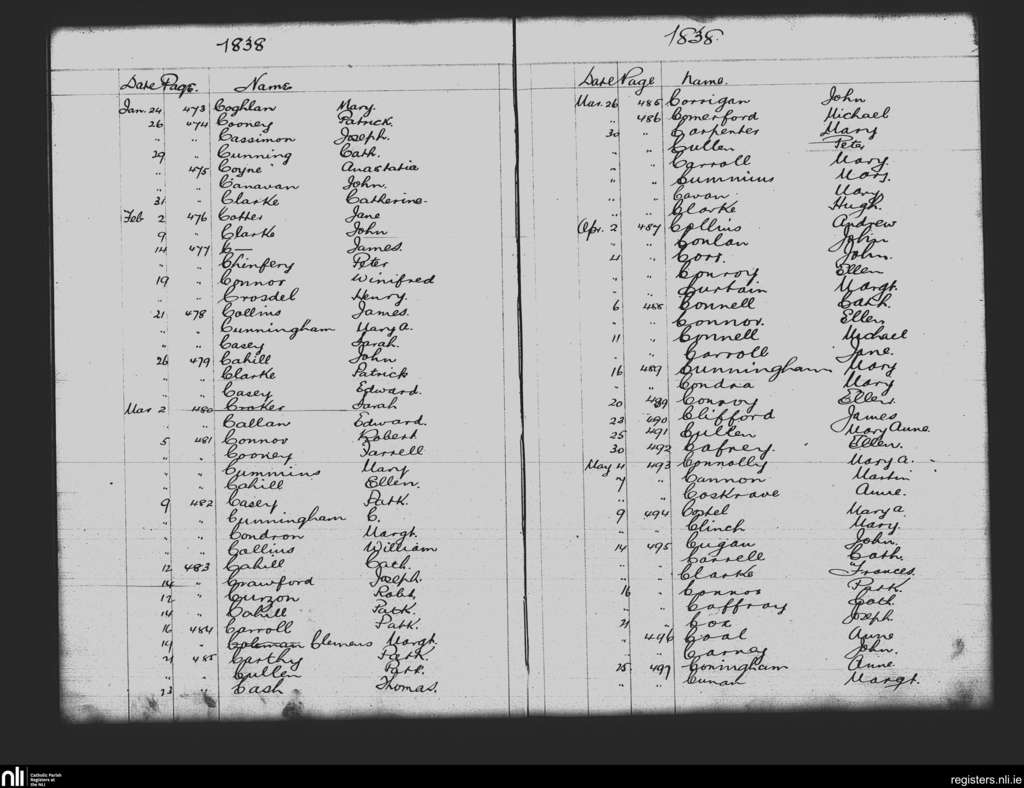 1838
Date Page. Name
Jan. 24 473 Coghlan Mary.
26 474 Cooney Patrick.
" " Cassimon Joseph.
29 " Cunning Cath.
" 475 Coyne Anastatia
" " Canavan John.
31 " Clarke Catherine.
Feb 2 476 Cotter Jane
9 " Clarke John
14 477 C— James.
" " Chinfery Peter
19 " Connor Winifred
" " Crosdel Henry.
21 478 Collins James.
" " Cunningham Mary A.
" " Casey Sarah.
26 479 Cahill John
" " Clarke Patrick
" " Casey Edward.
Mar 2 480 Craker Sarah
" " Callan Edward.
5 481 Connor Robert
" " Cooney Farrell
" " Cummins Mary
" " Cahill Ellen.
9 482 Casey Patk.
" " Cunningham C.
" " Condron Margt.
" " Collins William
12 483 Cahill Cath.
14 " Crawford Joseph.
12 " Curzon Robt.
14 " Cahill Patk.
16 484 Carroll Patk.
14 " Coleman Clemens Margt.
21 485 Carthy Patk
" " Cullen Patk.
23 " Cash Thomas.
1838.
Date Page Name.
Mar. 26 485 Corrigan John
" 486 Comerford Michael
30 " Carpenter Mary
" " Cullen Peter
" " Carroll Mary.
" " Cummins Mary.
" " Cavan Mary
" " Clarke Hugh.
Apr. 2 487 Collins Andrew
" " Conlan John
4 " Corr. John.
" " Conroy Ellen
" " Curtain Margt.
6 488 Connell Cath.
" " Connor. Ellen
11 " Connell Michael
" " Carroll Jane.
16 489 Cunningham Mary
" " Condra Mary
20 489 Conroy Ellen.
23 490 Clifford James
25 491 Cullen Mary Anne.
30 492 Cafrey. Ellen.
May 4 493 Connolly Mary A.
7 " Cannon Martin
" " Coskrave Anne.
9 494 Costel Mary A
" " Clinch Mary.
14 495 Cugan John.
" " Carrell Cath.
" " Clarke Frances.
16 " Connor Patk.
" " Caffray Cath.
21 " Cox Joseph.
" 496 Coal Anne
" " Carney John.
25 497 Coningham Anne
" " Cunan Margt.
nli Catholic Parish
Registers at
the NLI
registers.nli.ie